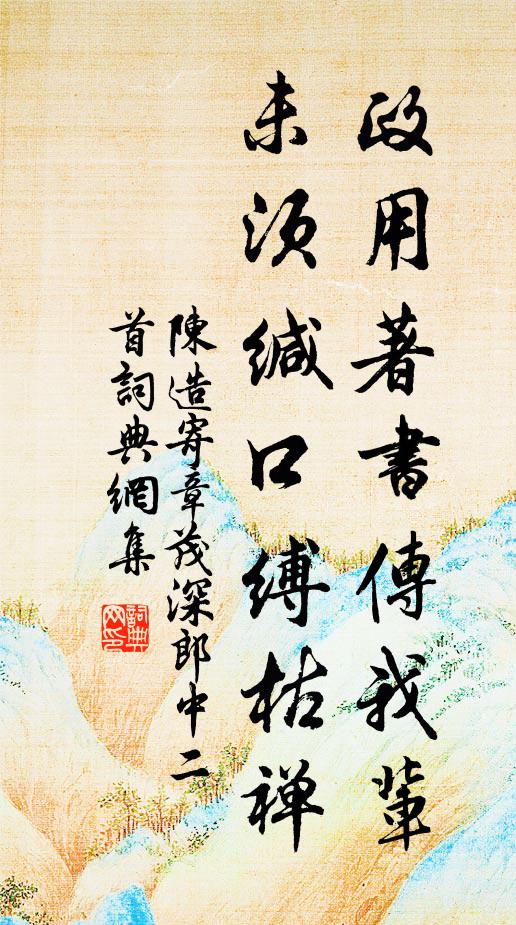 政用著書傳我輩
未須緘口縛枯禪
陳造寄章茂深郎中二
首詞典網集
詞典
网印